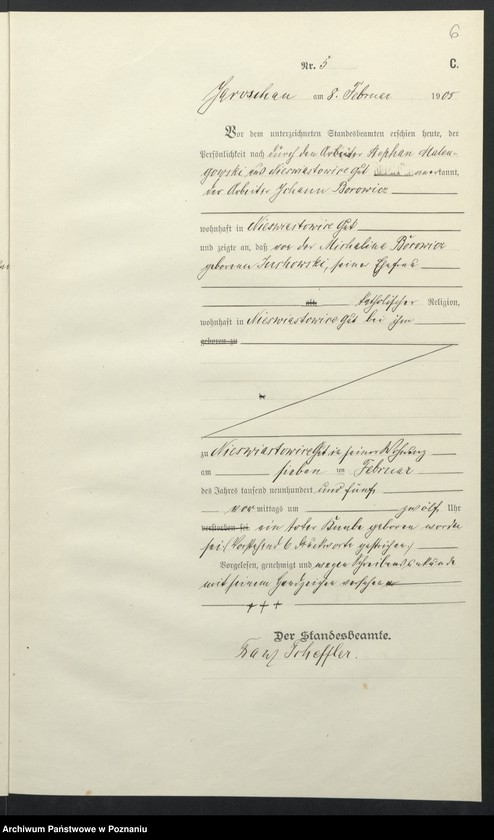 6
Nr. 5 C.
Jaroschau am 8. Februar 1905
Vor dem unterzeichneten Standesbeamten erschien heute, der
Persönlichkeit nach durch den Arbeiter Stephan
aus Nieswiastowice Gut anerkannt,
der Arbeiter Johann Borowicz
wohnhaft in Nieswiastowice Gut
und zeigte an, daß von der Michalina Borowicz
geborenen, seine Ehefrau
alt, katholischer Religion,
wohnhaft in Nieswiastowice Gut bei ihm
geboren zu
zu Nieswiastowice Gut in seiner Wohnung
am sieben ten Februar
des Jahres tausend neunhundert und fünf
vor mittags um zwölf Uhr
verstorben sei ein toter Knabe geboren worden
sei (Vorstehend 6 Druckworte gestrichen)
Vorgelesen, genehmigt und wegen Schreibensunkunde
mit seinem Handzeichen versehen
+ + +
Der Standesbeamte.
Franz Scheffler.
Archiwum Państwowe w Poznaniu